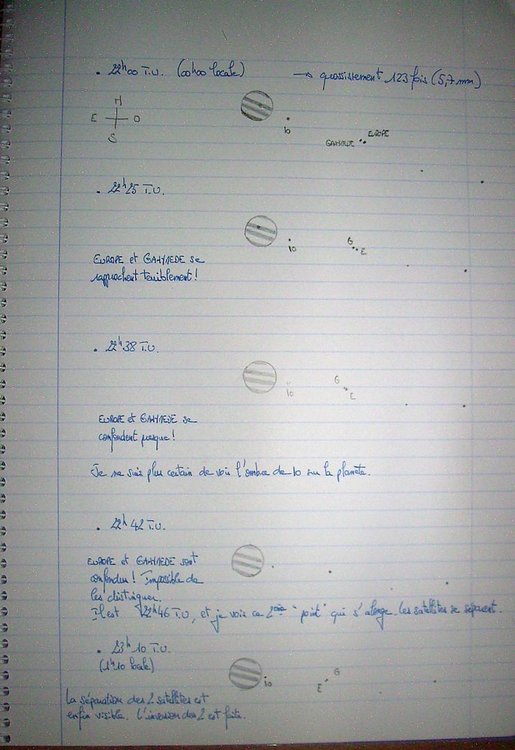 • 22h00 T.U. (00h00 locale) → grossissement 123 fois (5,7mm)
N
E O
S
IO
GANYMEDE EUROPE
• 22h25 T.U.
IO G E
EUROPE et GANYMEDE se
rapprochent terriblement!
• 22h38 T.U.
IO G E
EUROPE et GANYMEDE se
confondent presque!
Je ne suis plus certain de voir l'ombre de IO sur la planète.
• 22h42 T.U.
EUROPE et GANYMEDE sont
confondus! Impossible de
les distinguer.
Il est 22h46 T.U, et je vois ce "point" qui s'allonge les satellites se séparent.
• 23h10 T.U.
(1h10 locale)
IO E G
La séparation des 2 satellites est
enfin visible. L'inversion des 2 est faite.